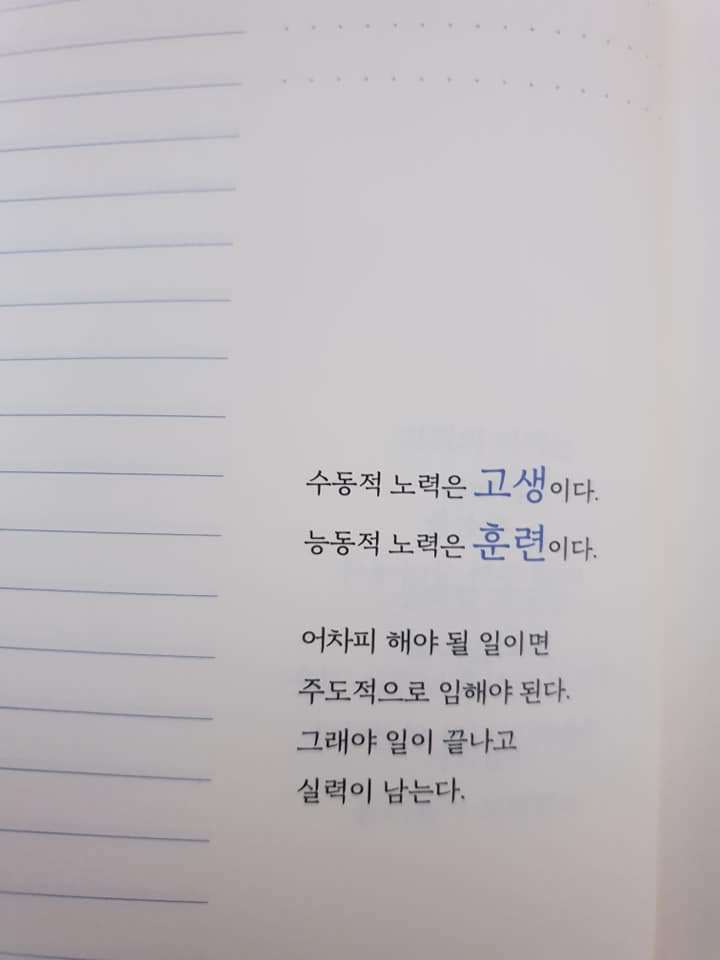 수동적 노력은 고생이다.
능동적 노력은 훈련이다.
어차피 해야 될 일이면
주도적으로 임해야 된다.
그래야 일이 끝나고
실력이 남는다.